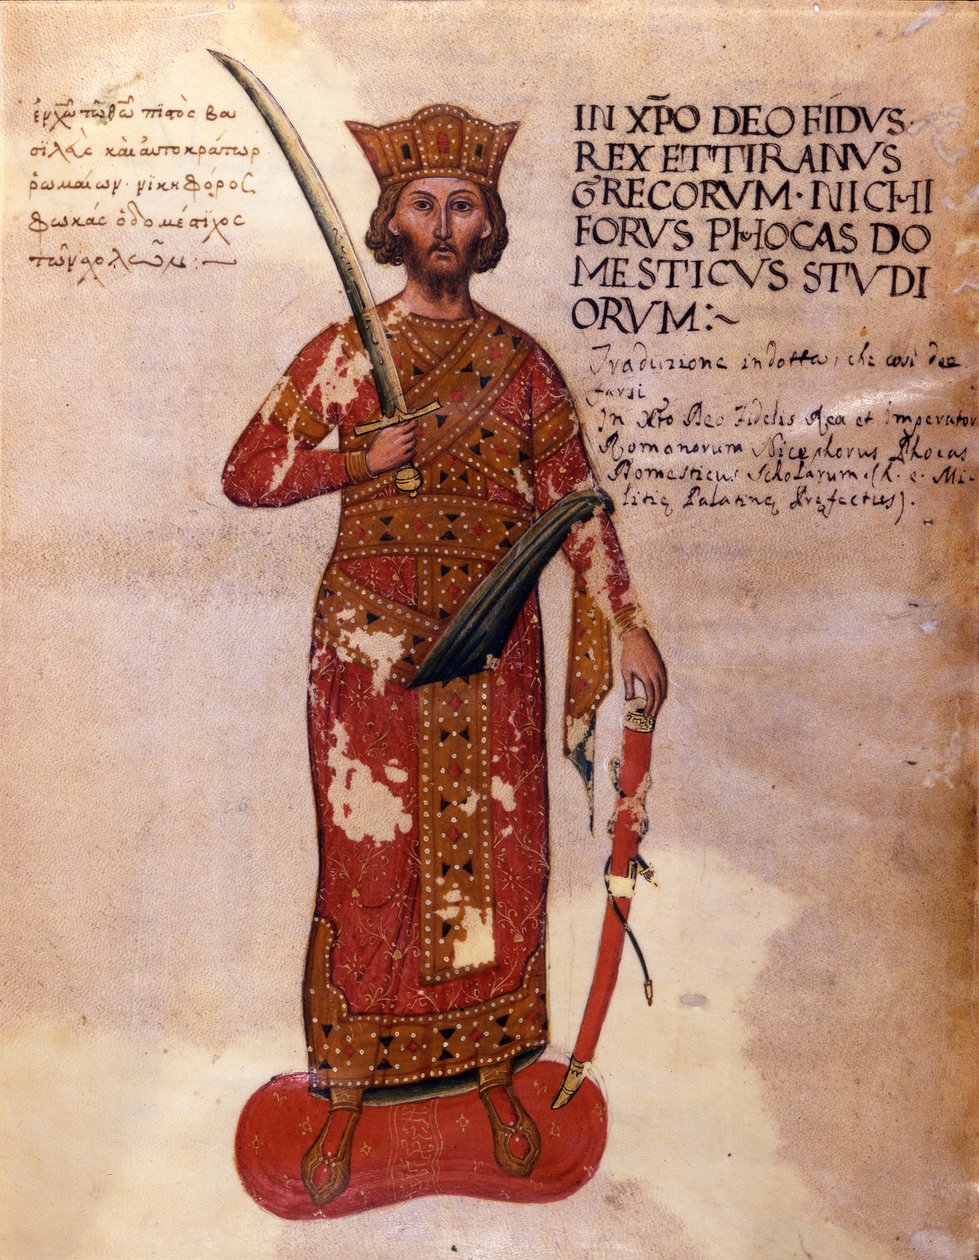 ἐν χ͞ω τῶ θ͞ω πιστὸς βα
σιλεὺς καὶ αὐτοκράτωρ
ῥωμαίων· νικηφόρος
φωκάς ὁ δομέστιχος
τῶν σχολῶν :~
IN XP̅O DEO FIDVS·
REX ET TIRANVS
GRECORVM· NICHI
FORVS PHOCAS DO
MESTICVS STVDI
ORVM:~
Traduzione indotta, che così dee
farsi
In Xto Deo Fidelis Rex et imperator
Romanorum Nicephorus Phocas
Domesticus Scholarum (h. e. Mi-
litię Palatinę Pręfectus).